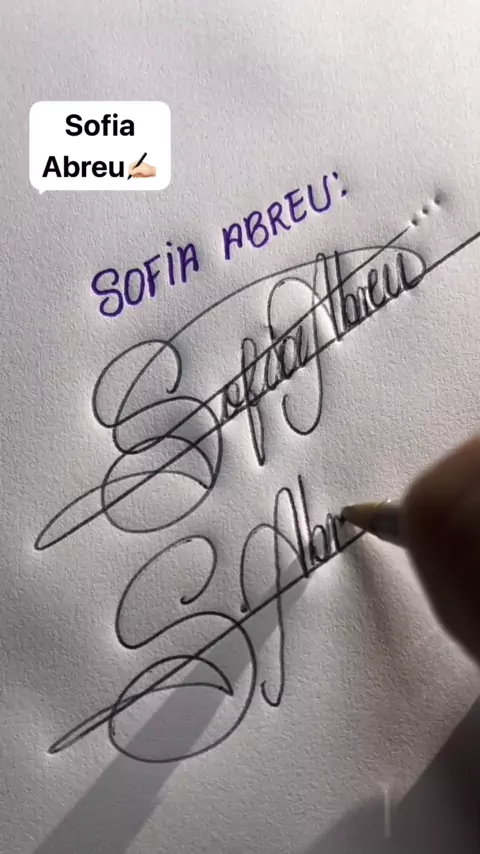 Sofia
Abreu✍🏻
SOFiA ABREU:
Sofia Abreu
S.Abr